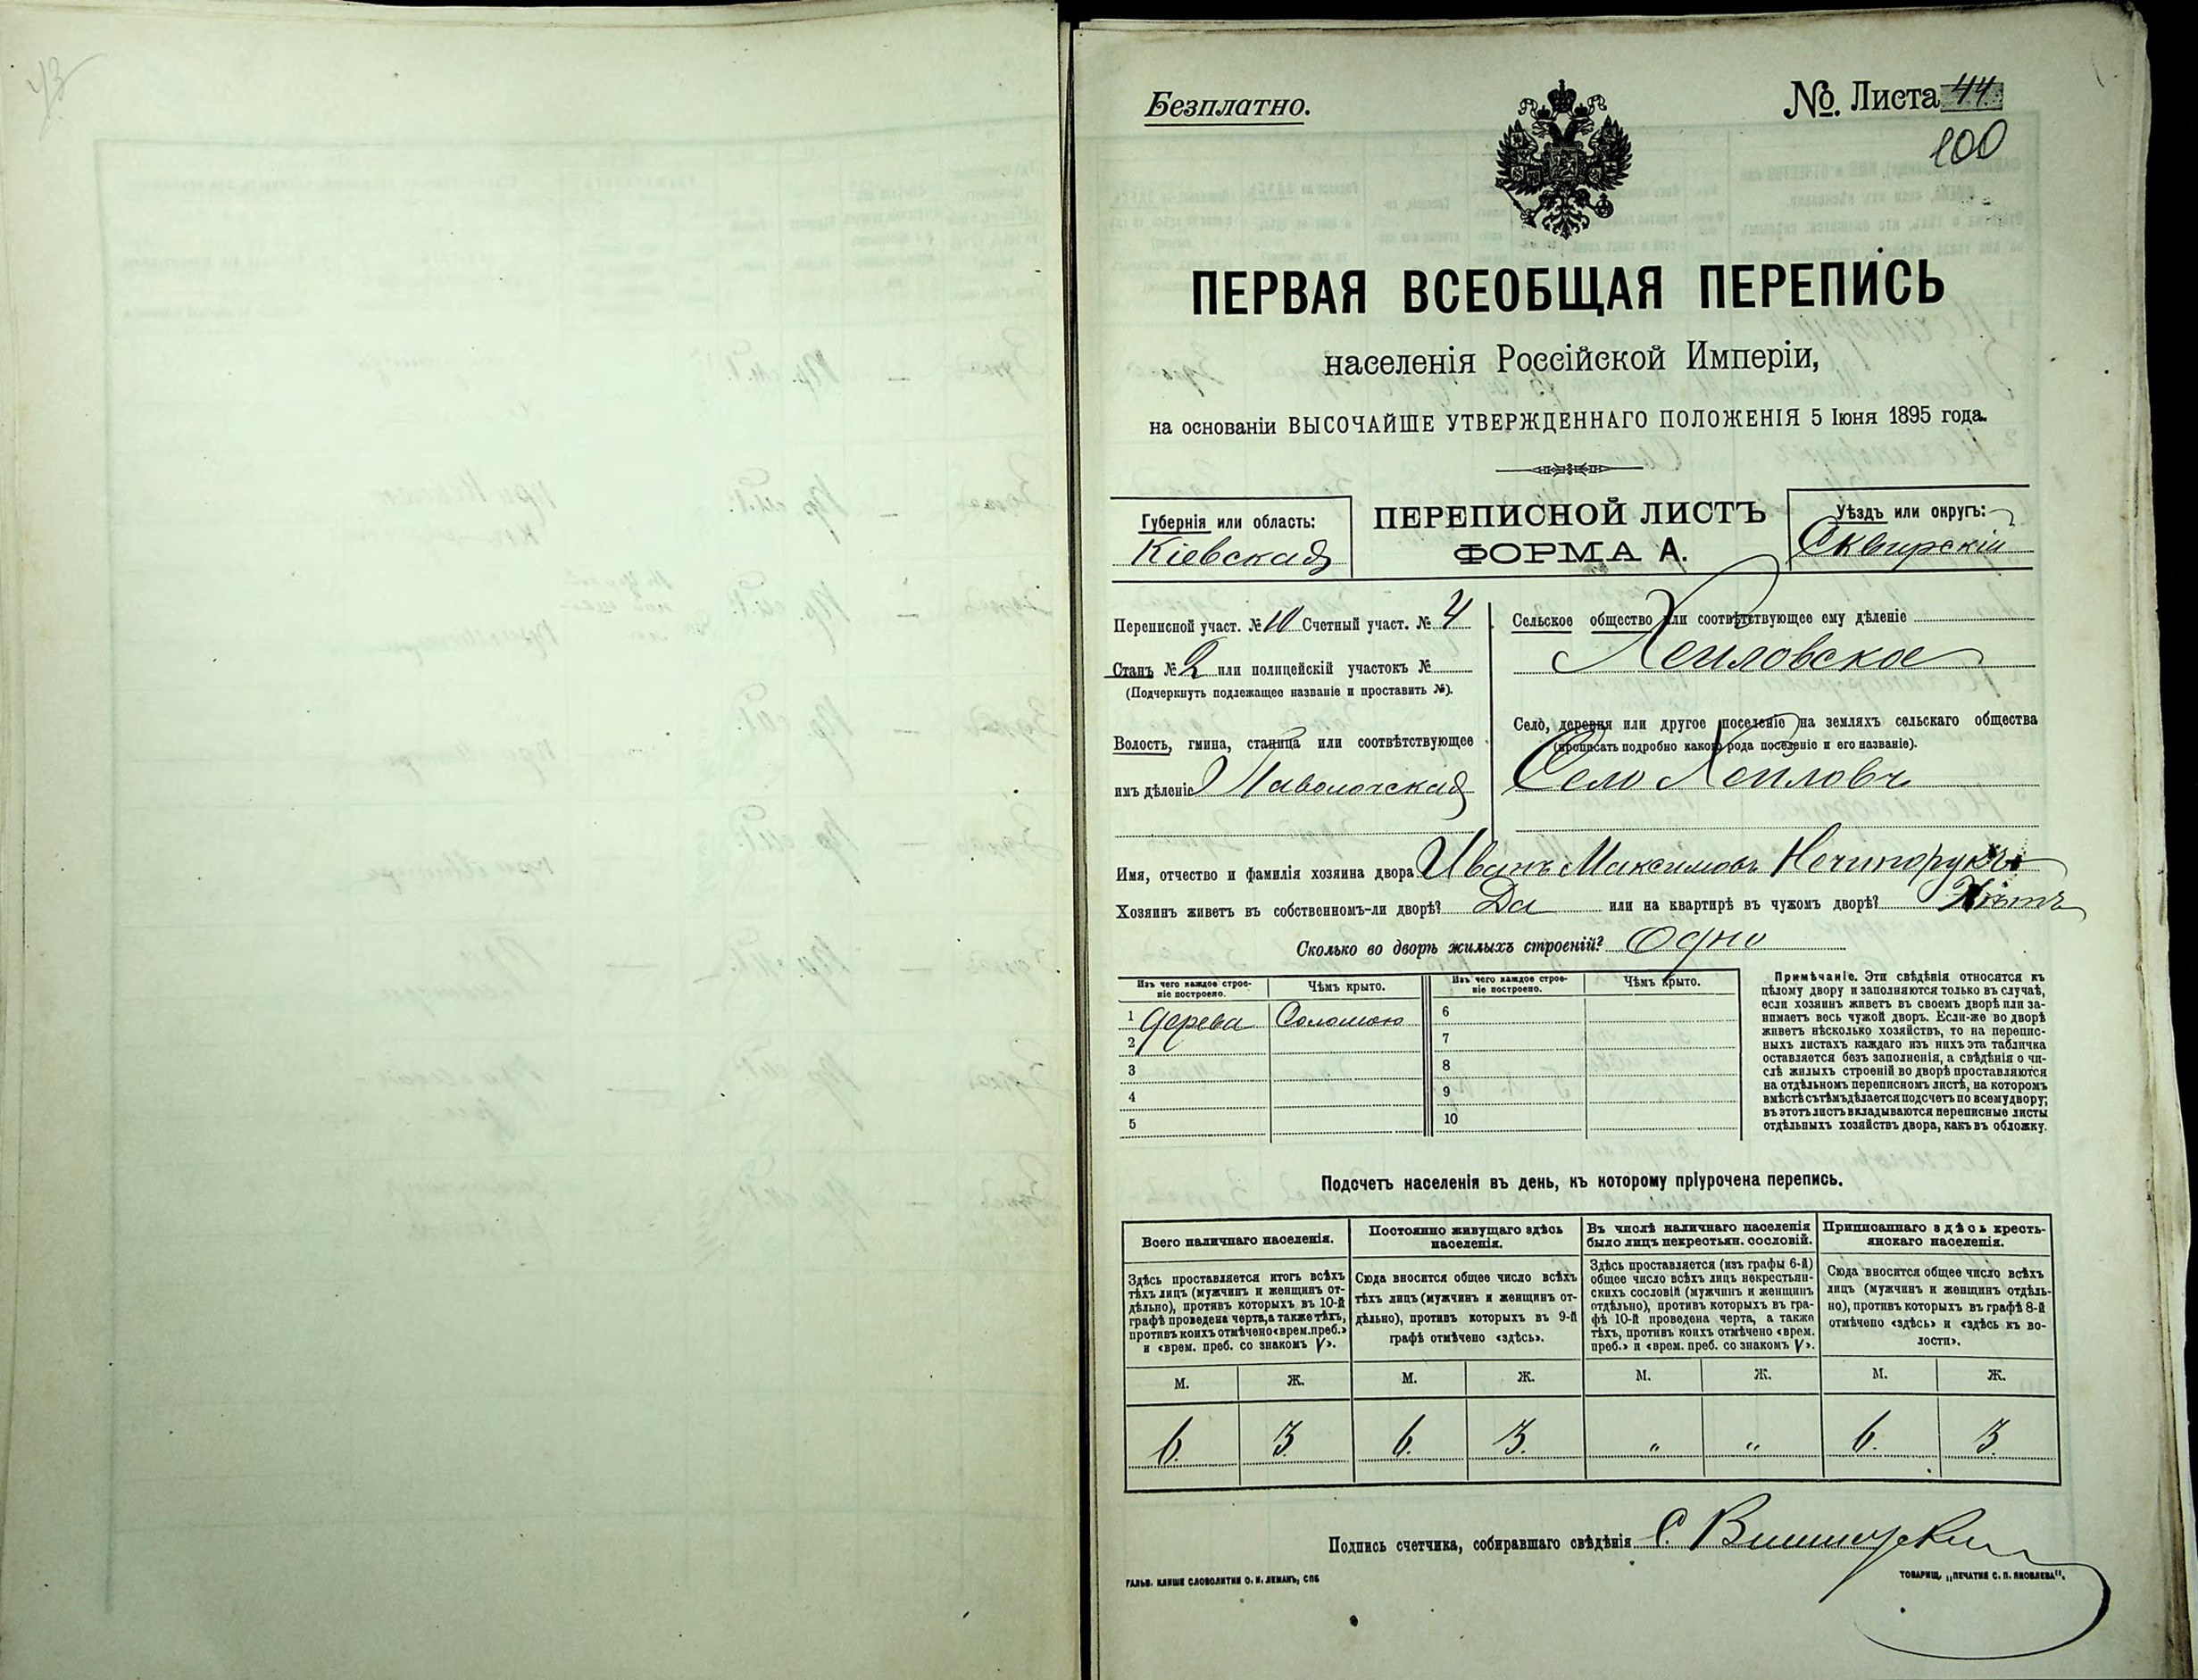 Безплатно.
№ Листа 44
100
ПЕРВАЯ ВСЕОБЩАЯ ПЕРЕПИСЬ
населенія Россійской Имперіи,
на основаніи ВЫСОЧАЙШЕ УТВЕРЖДЕННАГО ПОЛОЖЕНІЯ 5 Іюня 1895 года.
Губернія или область:
Кіевская
ПЕРЕПИСНОЙ ЛИСТЪ
ФОРМА А.
Уѣздъ или округъ:
Сквирскій
Переписной участ. № 10 Счетный участ. № 4
Станъ № 2 или полицейскій участокъ №
(Подчеркнуть подлежащее названіе и проставить №).
Волость, гмина, станица или соотвѣтствующее
имъ дѣленіе Паволочская
Сельское общество или соотвѣтствующее ему дѣленіе
Село, деревня или другое поселеніе на земляхъ сельскаго общества
(прописать подробно какого рода поселеніе и его названіе).
Село
Имя, отчество и фамилія хозяина двора Иванъ Максимовъ Нечипорукъ
Хозяинъ живетъ въ собственномъ-ли дворѣ? Да или на квартирѣ въ чужомъ дворѣ? Нѣтъ
Сколько во дворѣ жилыхъ строеній? Одно
Изъ чего каждое строе-
ніе построено.
Чѣмъ крыто.
Изъ чего каждое строе-
ніе построено.
Чѣмъ крыто.
1 Дерева Соломою
2
3
4
5
6
7
8
9
10
Примѣчаніе. Эти свѣдѣнія относятся къ
цѣлому двору и заполняются только въ случаѣ,
если хозяинъ живетъ въ своемъ дворѣ или за-
нимаетъ весь чужой дворъ. Если-же во дворѣ
живетъ нѣсколько хозяйствъ, то на перепис-
ныхъ листахъ каждаго изъ нихъ эта табличка
оставляется безъ заполненія, а свѣдѣнія о чи-
слѣ жилыхъ строеній во дворѣ проставляются
на отдѣльномъ переписномъ листѣ, на которомъ
вмѣстѣ съ тѣмъ дѣлается подсчетъ по всему двору;
въ этотъ листъ вкладываются переписные листы
отдѣльныхъ хозяйствъ двора, какъ въ обложку.
Подсчетъ населенія въ день, къ которому пріурочена перепись.
Всего наличнаго населенія.
Здѣсь проставляется итогъ всѣхъ
тѣхъ лицъ (мужчинъ и женщинъ от-
дѣльно), противъ которыхъ въ 10-й
графѣ проведена черта, а также тѣхъ,
противъ коихъ отмѣчено «врем. преб.»
и «врем. преб. со знакомъ V».
Постоянно живущаго здѣсь
населенія.
Сюда вносится общее число всѣхъ
тѣхъ лицъ (мужчинъ и женщинъ от-
дѣльно), противъ которыхъ въ 9-й
графѣ отмѣчено «здѣсь».
Въ числѣ наличнаго населенія
было лицъ некрестьян. сословій.
Здѣсь проставляется (изъ графы 6-й)
общее число всѣхъ лицъ некрестьян-
скихъ сословій (мужчинъ и женщинъ
отдѣльно), противъ которыхъ въ гра-
фѣ 10-й проведена черта, а также
тѣхъ, противъ коихъ отмѣчено «врем.
преб.» и «врем. преб. со знакомъ V».
Приписаннаго здѣсь кресть-
янскаго населенія.
Сюда вносится общее число всѣхъ
лицъ (мужчинъ и женщинъ отдѣль-
но), противъ которыхъ въ графѣ 8-й
отмѣчено «здѣсь» и «здѣсь къ во-
лости».
М. Ж. М. Ж. М. Ж. М. Ж.
6. 3. 6. 3. „ „ 6. 3.
Подпись счетчика, собиравшаго свѣдѣнія С.
ГАЛЬВ. КЛИШЕ СЛОВОЛИТНИ О. И. ЛЕМАНЪ, СПБ
ТОВАРИЩ. „ПЕЧАТНЯ С. П. ЯКОВЛЕВА".